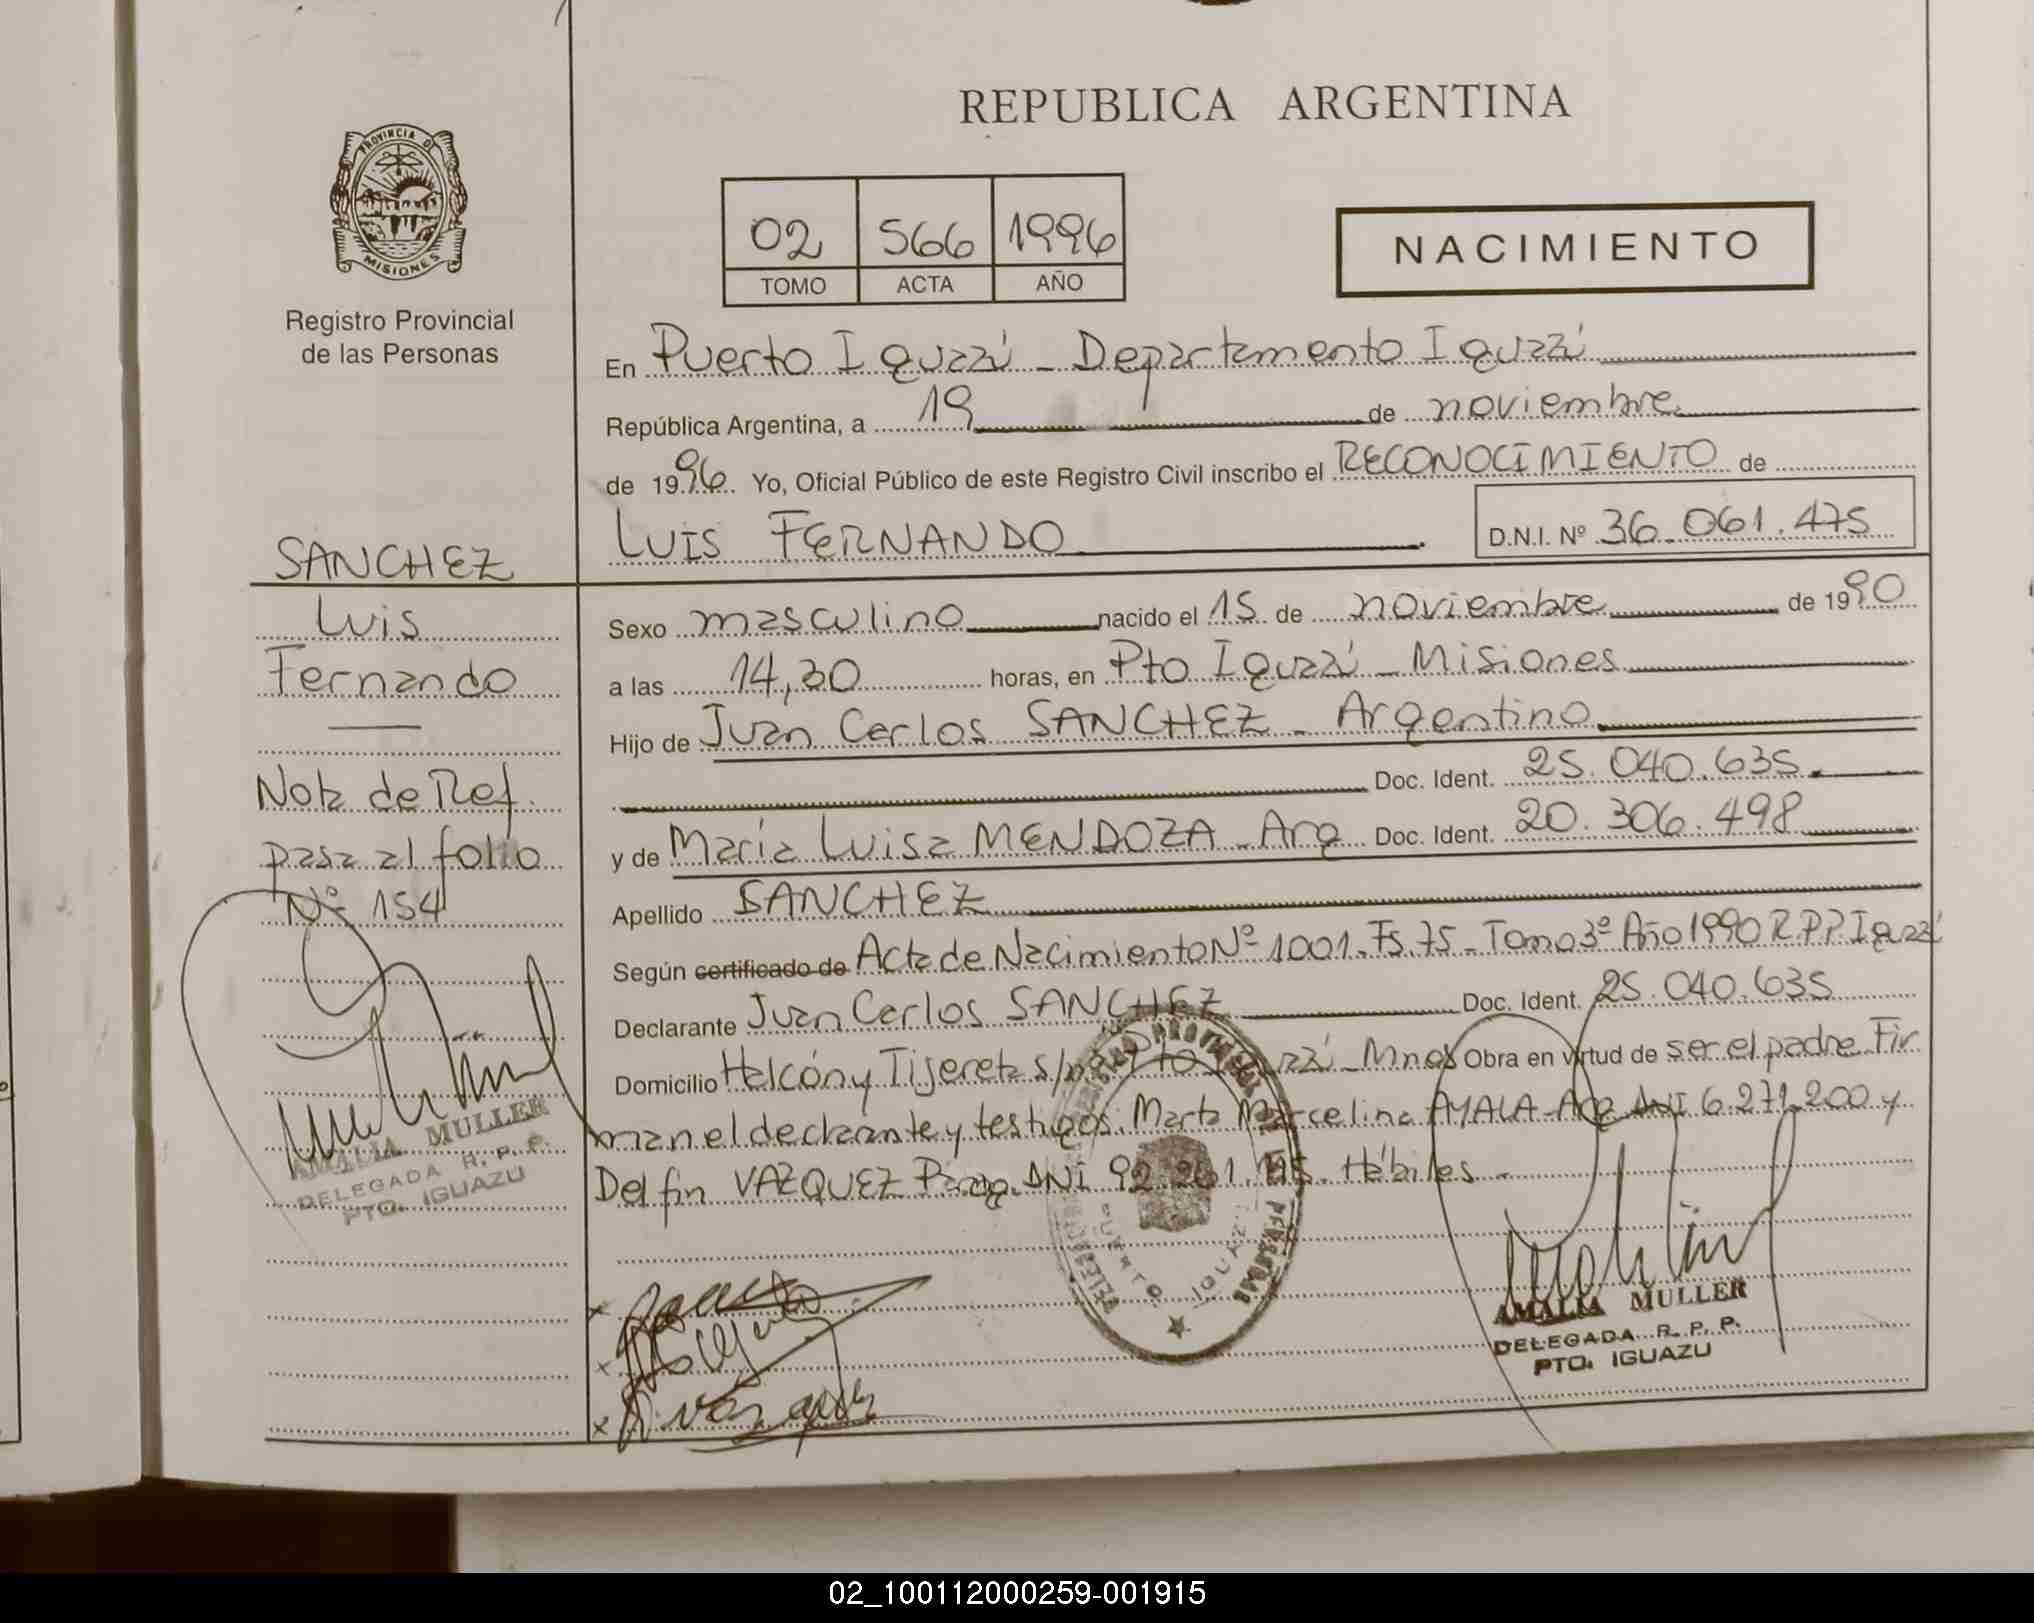 REPUBLICA ARGENTINA
PROVINCIA DE
MISIONES
Registro Provincial
de las Personas
02 566 1996
TOMO ACTA AÑO
NACIMIENTO
En Puerto Iguazú - Departamento Iguazú
República Argentina, a 19 de noviembre
de 1996. Yo, Oficial Público de este Registro Civil inscribo el RECONOCIMIENTO de
LUIS FERNANDO D.N.I. Nº 36.061.475
SANCHEZ
Luis
Fernando
Nota de Ref.
pasa al folio
Nº 154
AMALIA MULLER
DELEGADA R. P. P.
PTO. IGUAZU
Sexo masculino nacido el 15 de noviembre de 1990
a las 14,30 horas, en Pto Iguazú - Misiones
Hijo de Juan Carlos SANCHEZ - Argentino
Doc. Ident. 25.040.635.
y de María Luisa MENDOZA - Arg Doc. Ident. 20.306.498
Apellido SANCHEZ
Según certificado de Acta de Nacimiento Nº 1001. Fs. 75 - Tomo 3º Año 1990 R.P.P Iguazú
Declarante Juan Carlos SANCHEZ Doc. Ident. 25.040.635
Domicilio Halcón y Tijereta s/nº Pto Iguazú - Mnes Obra en virtud de ser el padre. Fir
man el declarante y testigos. Marta Marcelina AYALA - Arg DNI 6.271.200 y
Delfin VAZQUEZ Parag. DNI 92.261. Hábiles -
PUERTO IGUAZU
AMALIA MULLER
DELEGADA R. P. P.
PTO. IGUAZU
02_100112000259-001915